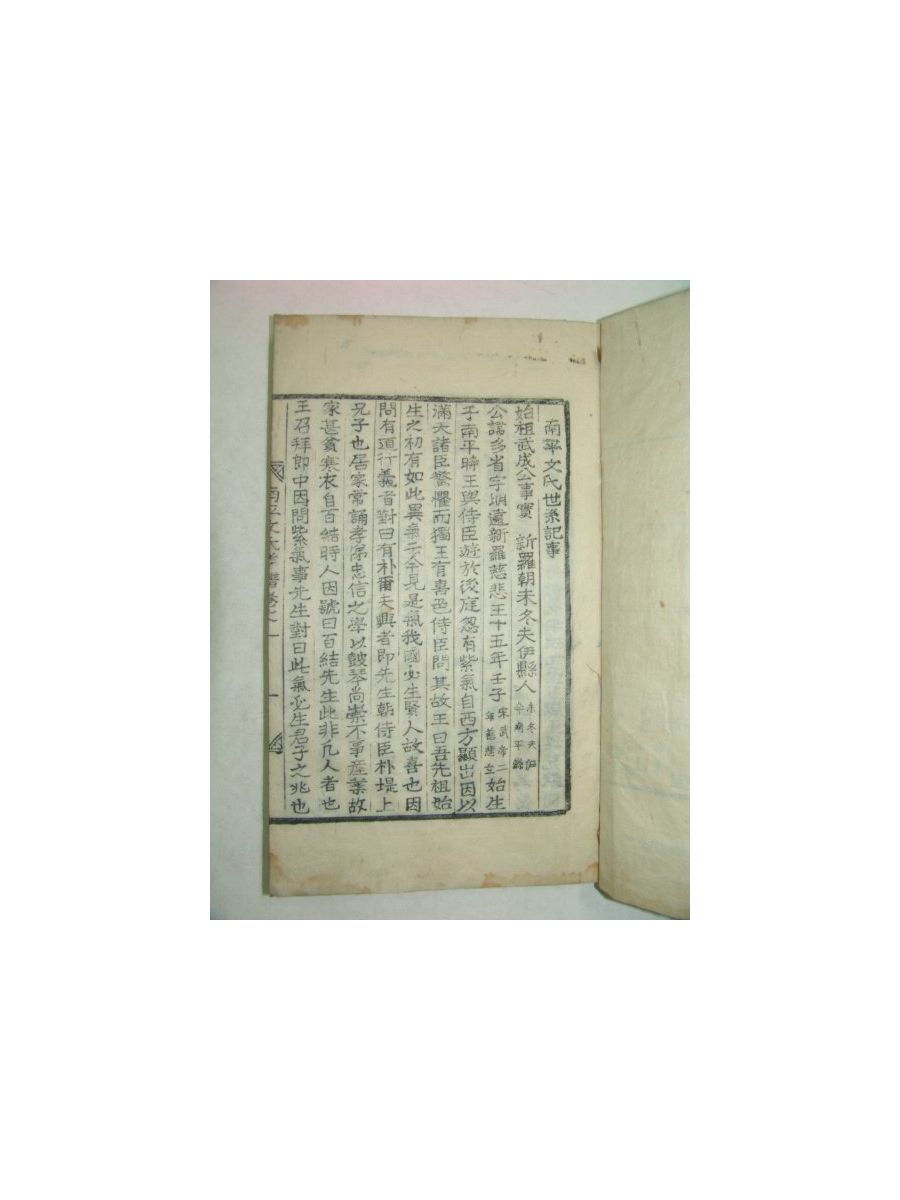 南平文氏世系記事
始祖武成公事實 新羅朝未冬夫伊縣人 未冬夫伊今南平縣
公諱多省字明遠新羅慈悲王十五年壬子 始生
于南平時王與侍臣遊於後庭忽有紫氣自西方顯出因以
滿天諸臣驚懼而獨王有喜色侍臣問其故王曰吾先祖始
生之初有如此異氣云今見是氣我國必生賢人故喜也因
問有道行義者對曰有朴爾夫興者即先生朝侍臣朴堤上
兄子也居家常誦孝弟忠信之學以鼓琴尚崇不事產業故
家甚貧寒衣自百結時人因號曰百結先生此非凡人者也
王召拜郎中因問紫氣事先生對曰此氣必生君子之兆也